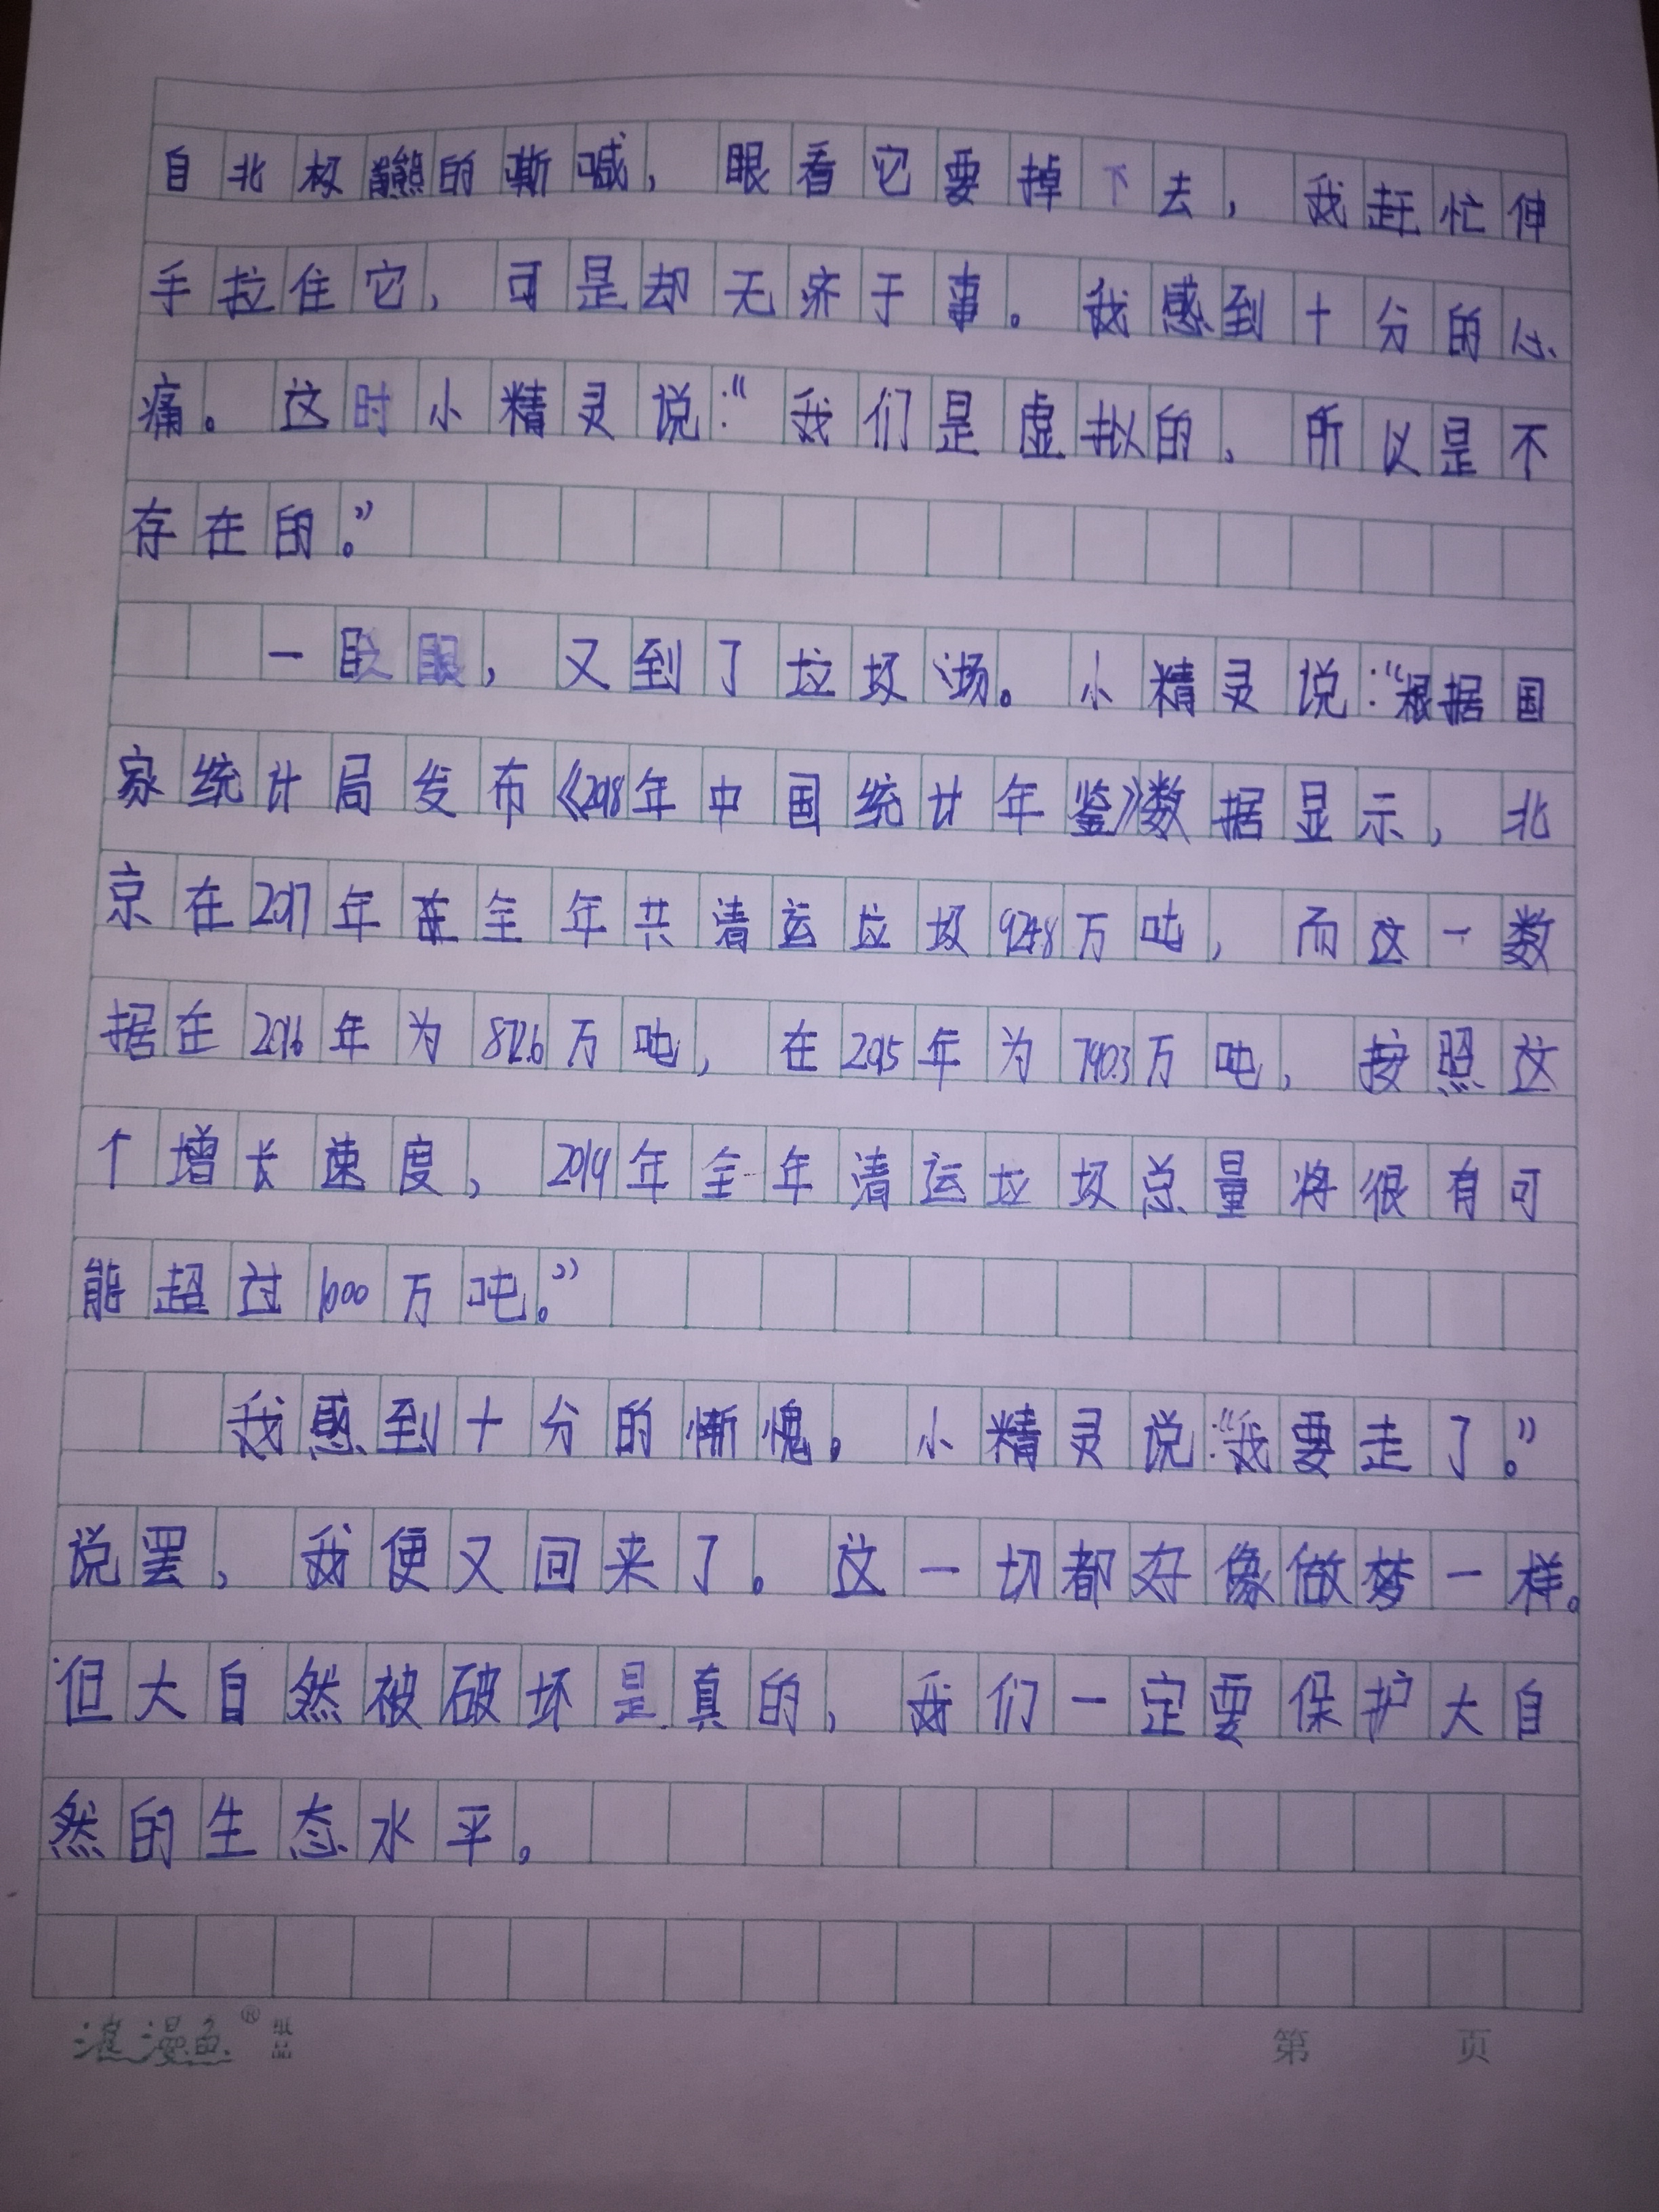 自北极熊的嘶喊，眼看它要掉下去，我赶忙伸
手拉住它，可是却无济于事。我感到十分的心
痛。这时小精灵说：“我们是虚拟的，所以是不
存在的。”
一眨眼，又到了垃圾场。小精灵说：“根据国
家统计局发布《2018年中国统计年鉴》数据显示，北
京在2017年在全年共清运垃圾924.8万吨，而这一数
据在2016年为872.6万吨，在2015年为790.3万吨，按照这
个增长速度，2019年全年清运垃圾总量将很有可
能超过1000万吨。”
我感到十分的惭愧。小精灵说：“我要走了。”
说罢，我便又回来了。这一切都好像做梦一样。
但大自然被破坏是真的，我们一定要保护大自
然的生态水平。
浪漫鱼® 纸品
第 页